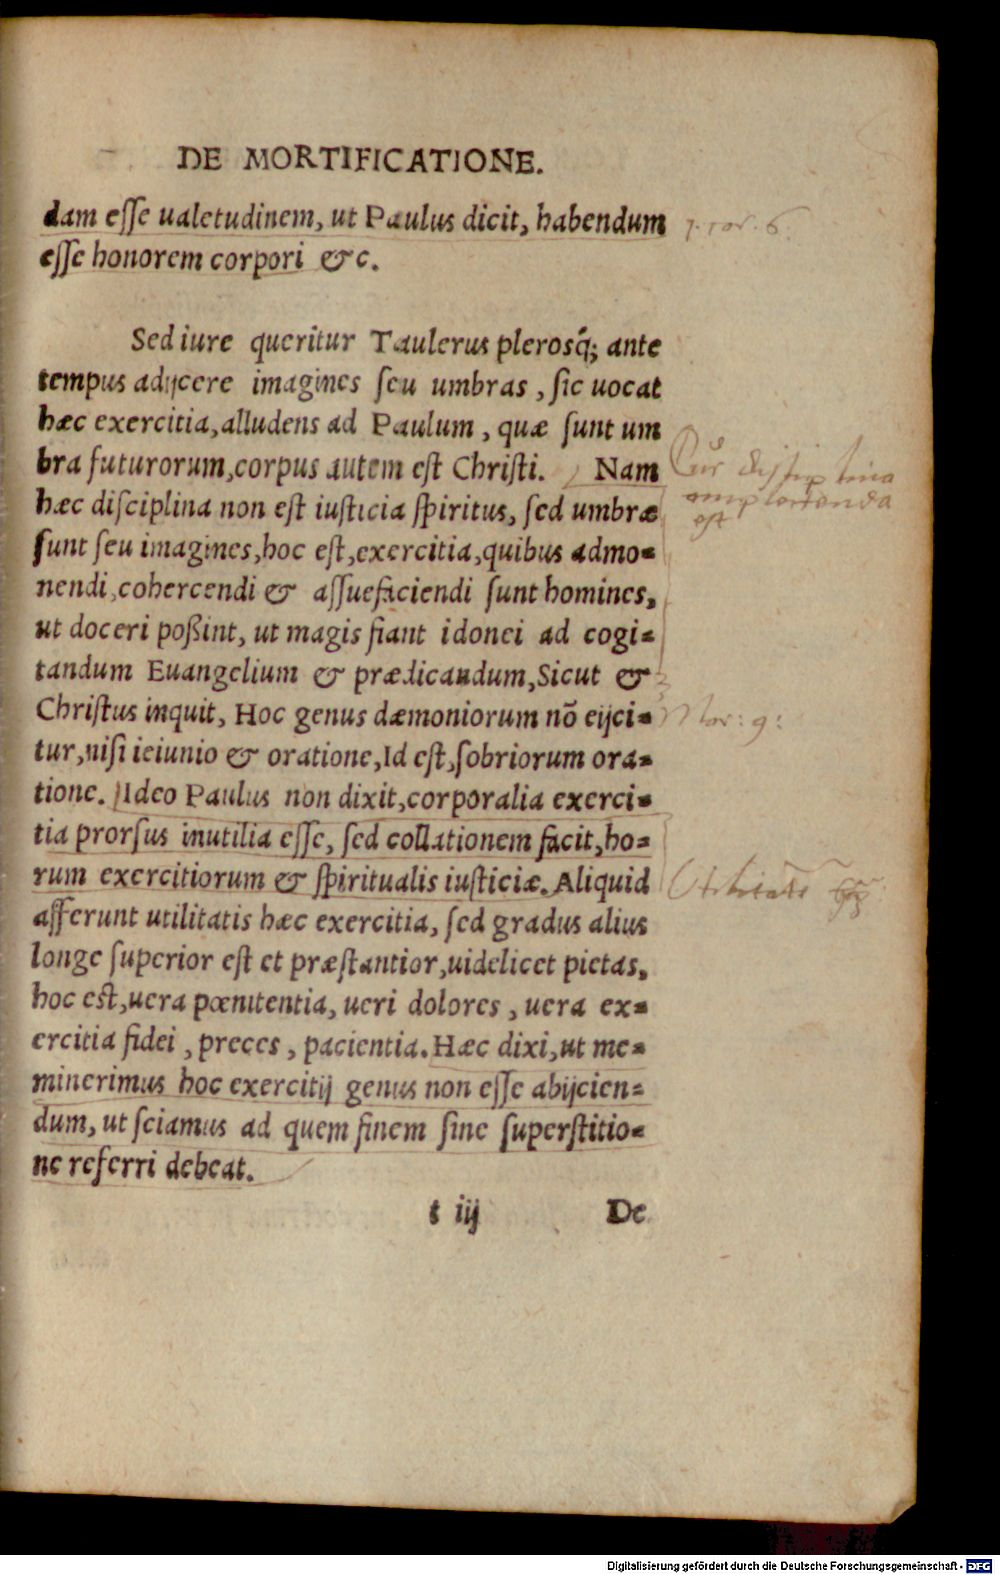 DE MORTIFICATIONE.
dam esse ualetudinem, ut Paulus dicit, habendum
1. cor. 6.
esse honorem corpori &c.
Sed iure queritur Taulerus plerosq́; ante
tempus adijcere imagines seu umbras, sic uocat
hæc exercitia, alludens ad Paulum, quæ sunt um
bra futurorum, corpus autem est Christi. Nam
Cur disciplina
hæc disciplina non est iusticia spiritus, sed umbræ
amplectenda
est
sunt seu imagines, hoc est, exercitia, quibus admo=
nendi, cohercendi & assuefaciendi sunt homines,
ut doceri poßint, ut magis fiant idonei ad cogi=
tandum Euangelium & prædicandum, Sicut &
Christus inquit, Hoc genus dæmoniorum nō eijci=
Mar: 9:
tur, nisi ieiunio & oratione, Id est, sobriorum ora=
tione. Ideo Paulus non dixit, corporalia exerci=
tia prorsus inutilia esse, sed collationem facit, ho=
rum exercitiorum & spiritualis iusticiæ. Aliquid
afferunt utilitatis hæc exercitia, sed gradus alius
longe superior est et præstantior, uidelicet pietas,
hoc est, uera pœnitentia, ueri dolores, uera ex=
ercitia fidei, preces, pacientia. Hæc dixi, ut me=
minerimus hoc exercitij genus non esse abijcien=
dum, ut sciamus ad quem finem sine superstitio=
ne referri debeat.
t iij De
Digitalisierung gefördert durch die Deutsche Forschungsgemeinschaft - DFG